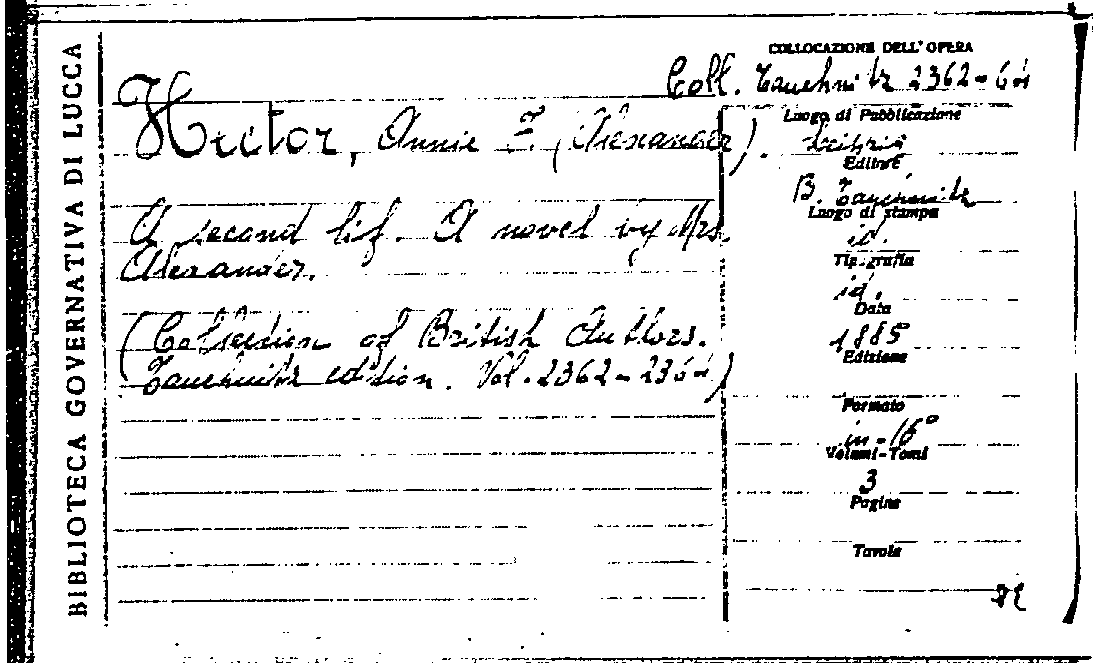 BIBLIOTECA GOVERNATIVA DI LUCCA
COLLOCAZIONE DELL'OPERA
Coll. Tauchnitz 2362-64
Hector, Annie F. (Alexander).
A second lif. A novel by Mrs.
Alexander.
(Collection of British Authors.
Tauchnitz edition. Vol. 2362-2364)
Luogo di Pubblicazione
Leipzig
Editore
B. Tauchnitz
Luogo di stampa
id.
Tipografia
id.
Data
1885
Edizione
Formato
in-16°
Volumi-Tomi
3
Pagine
Tavole